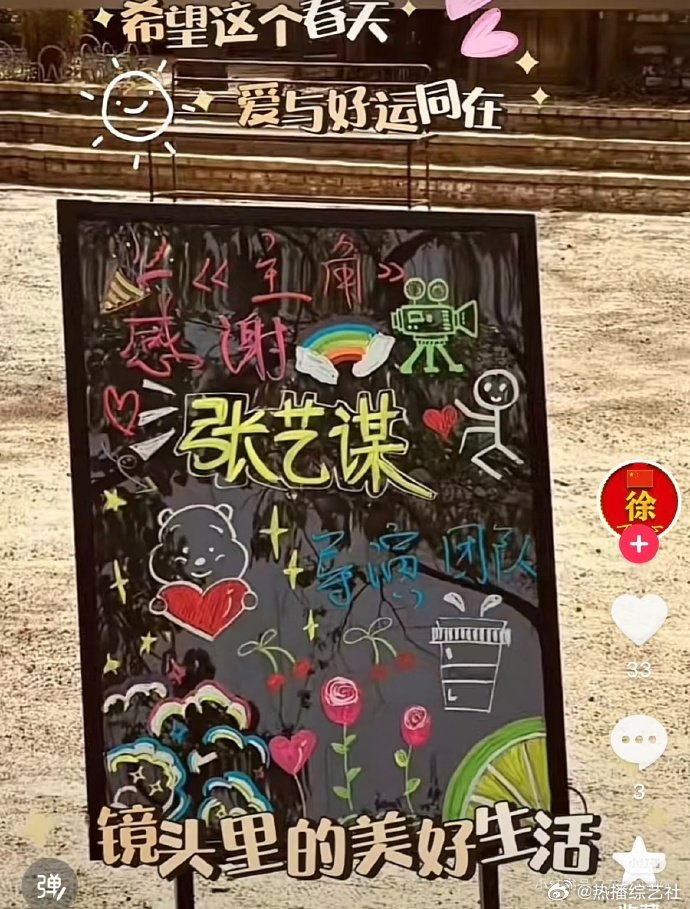 希望这个春天
爱与好运同在
《主角》
感谢
张艺谋
导演团队
徐
33
3
镜头里的美好生活
弹
@热播综艺社